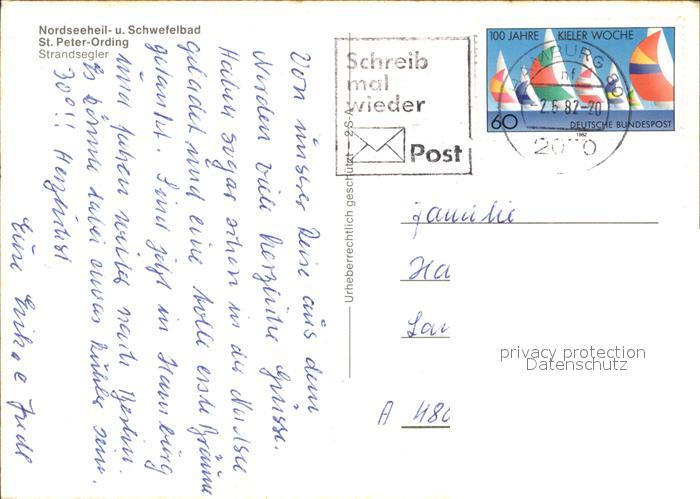 Nordseeheil- u. Schwefelbad
St. Peter-Ording
Strandsegler
Von unserer Reise aus dem
Norden viele herzliche Grüsse.
Haben sogar schon in der Nordsee
gebadet und eine tolle erste Bräune
getankt. Sind jetzt in Hamburg
und fahren weiter nach Berlin.
Es könnte dabei etwas kühler sein.
30°!! Herzlichst
Eure Erika
Urheberrechtlich geschützt
Schreib
mal
wieder
Post
100 JAHRE KIELER WOCHE
60 DEUTSCHE BUNDESPOST
1982
HAMBURG
nf
-2.6.82-20
2000
Familie
Ha
Lau
A 480
privacy protection
Datenschutz